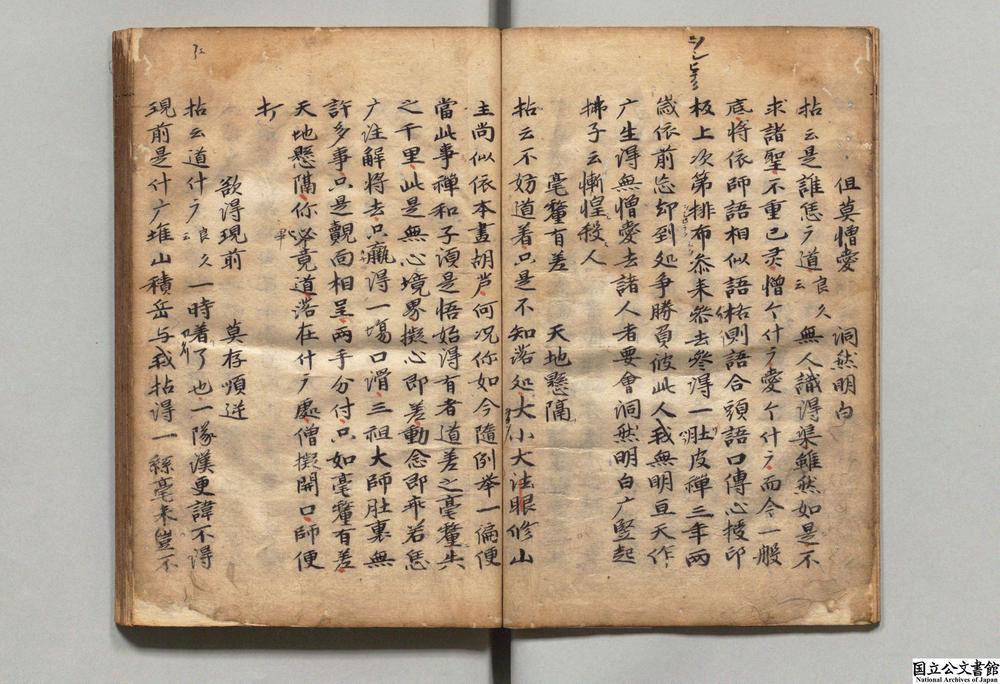 但莫憎愛　洞然明白
拈云是誰恁广道良久云無人識得渠雖然如是不
求諸聖不重已灵憎个什广愛个什广而今一般
底将依師語相似語格則語合頭語口傳心授印
板上次第排布参来参去参得一肚皮禅三年両
歳依前忘却到処争勝負彼此人我無明亘天作
广生得無憎愛去諸人者要會洞然明白广竪起
拂子云慚惶殺人
毫釐有差　天地懸隔
拈云不妨道着只是不知落処大小大法眼修山
主尚似依本畫胡芦何况你如今隨例举一徧便
當此事禅和子須是悟始得有者道差之毫釐失
之千里此是無心境界擬心即差動念即乖若恁
广注解将去只贏得一場口滑三祖大師肚裏無
許多事只是覿面相呈両手分付只如毫釐有差
天地懸隔你畢竟道落在什广處僧擬開口師便
打
欲得現前　莫存順逆
拈云道什广良久云一時着了也一隊漢更諱不得
現前是什广堆山積岳与我拈得一絲毫来豈不
国立公文書館
National Archives of Japan